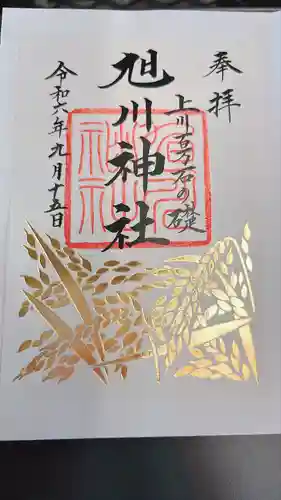 奉拝
上川百万石の礎
旭川神社
令和六年九月十五日